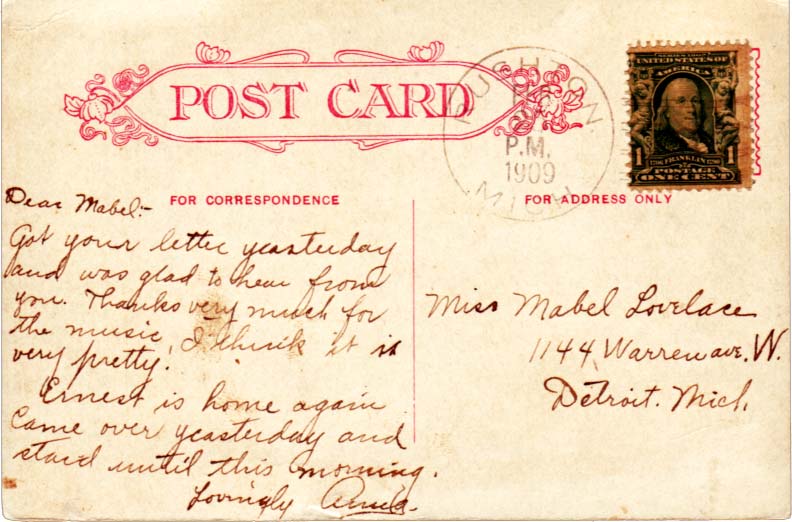 POST CARD
RUSHTON
P.M.
1909
MICH.
UNITED STATES OF
AMERICA
1 1706 FRANKLIN 1790 1
POSTAGE
ONE CENT
FOR CORRESPONDENCE
FOR ADDRESS ONLY
Dear Mabel:-
Got your letter yeasterday
and was glad to hear from
you. Thanks very much for
the music, I think it is
very pretty!
Ernest is home again
came over yeasterday and
staid until this morning.
Lovingly Annie.
Miss Mabel Lovelace
1144 Warren ave. W.
Detroit. Mich.